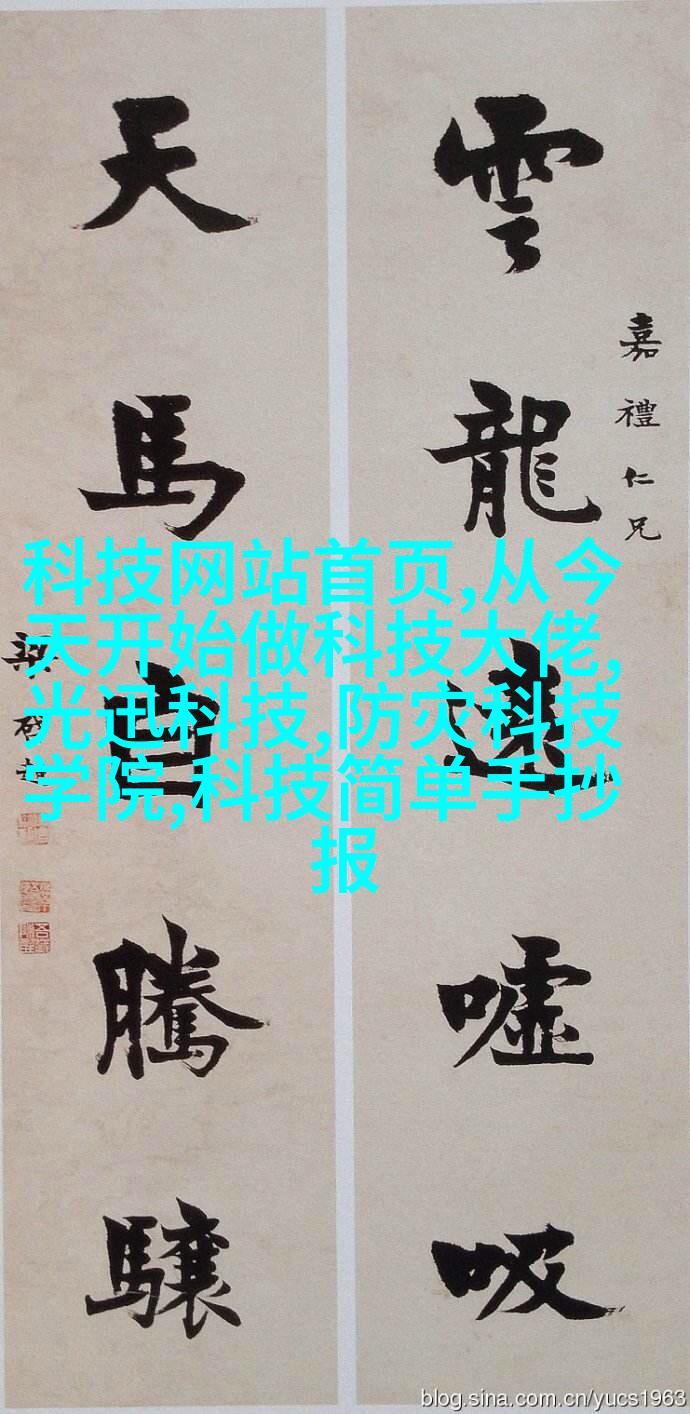 嘉禮仁兄
雲龍遠噓吸
天馬騰驤
梁啓超
科技网站首页,从今
天开始做科技大佬,
光迅科技,防灾科技
学院,科技简单手抄
报
blog.sina.com.cn/yucs1963